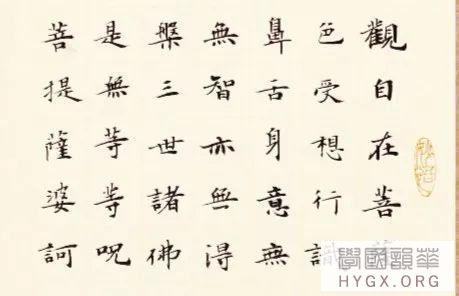 觀自在菩薩
色受想行識
鼻舌身意無
無智亦無得
槃三世諸佛
是無等等呪
菩提薩婆訶
華韻國學
HYGX.ORG